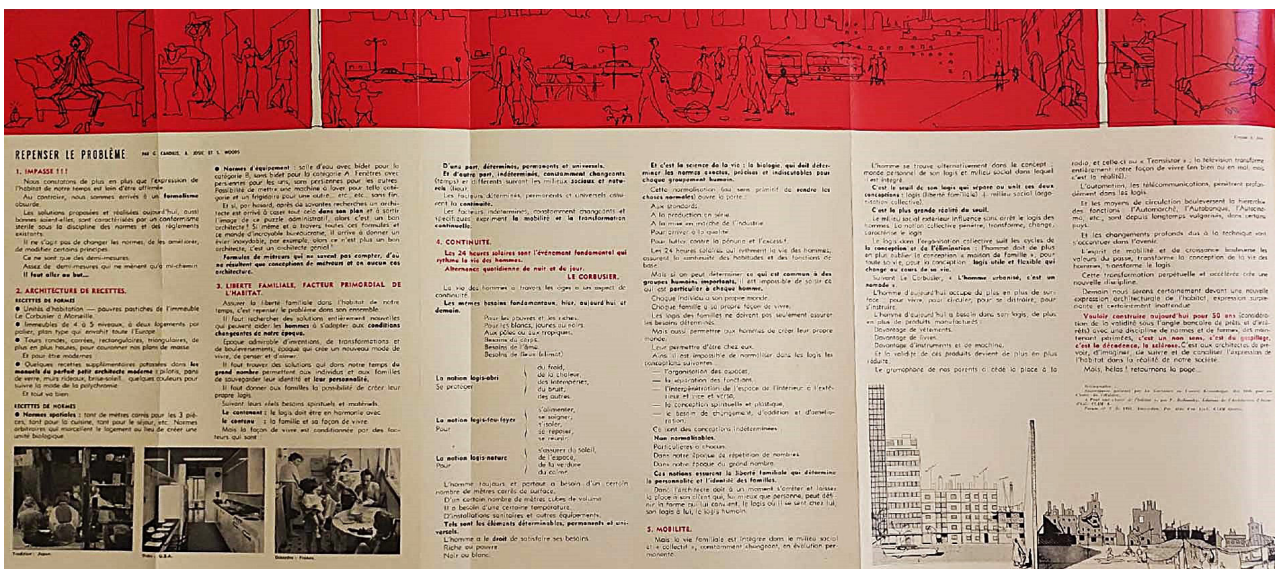 REPENSER LE PROBLÈME PAR G. CANDILIS, A. JOSIC ET S. WOODS
1. IMPASSE !!!
Nous constatons de plus en plus que l'expression de
l'habitat de notre temps est loin d'être affirmée.
Au contraire, nous sommes arrivés à un formalisme
absurde.
Les solutions proposées et réalisées aujourd'hui, aussi
bonnes soient-elles, sont caractérisées par un conformisme
stérile sous la discipline des normes et des règlements
existants.
Il ne s'agit pas de changer les normes, de les améliorer,
de modifier certains principes.
Ce ne sont que des demi-mesures.
Assez de demi-mesures qui ne mènent qu'à mi-chemin
Il faut aller au but...
2. ARCHITECTURE DE RECETTES.
RECETTES DE FORMES
● Unités d'habitation — pauvres pastiches de l'immeuble
Le Corbusier à Marseille.
● Immeubles de 4 à 5 niveaux, à deux logements par
palier, plan type qui envahit toute l'Europe.
● Tours rondes, carrées, rectangulaires, triangulaires, de
plus en plus hautes, pour couronner nos plans de masse
Et pour être modernes :
● Quelques recettes supplémentaires puisées dans les
manuels du parfait petit architecte moderne : pilotis, pans
de verre, murs rideaux, brise-soleil, quelques couleurs pour
suivre la mode de la polychromie.
Et tout va bien.
RECETTES DE NORMES
● Normes spatiales : tant de mètres carrés pour les 3 piè-
ces, tant pour la cuisine, tant pour le séjour, etc. Normes
arbitraires qui morcellent le logement au lieu de créer une
unité biologique.
Tradition : Japon.
U.S.A.
France.
● Normes d'équipement : salle d'eau avec bidet pour la
catégorie B, sans bidet pour la catégorie A. Fenêtres avec
persiennes pour les uns, sans persiennes pour les autres.
Possibilité de mettre une machine à laver pour telle caté-
gorie et un frigidaire pour une autre... etc., etc. sans fin.
Et si, par hasard, après de savantes recherches un archi-
tecte est arrivé à caser tout cela dans son plan et à sortir
l'image de ce puzzle administratif, alors c'est un bon
architecte ! Si même et à travers toutes ces formules et
ce monde d'incroyable bureaucratie, il arrive à donner un
évier inoxydable, par exemple, alors ce n'est plus un bon
architecte, c'est un architecte génial !
Formules de métreurs qui ne savent pas compter, d'où
ne résultent que conceptions de métreurs et en aucun cas
architecture.
3. LIBERTE FAMILIALE, FACTEUR PRIMORDIAL DE
L'HABITAT.
Assurer la liberté familiale dans l'habitat de notre
temps, c'est repenser le problème dans son ensemble.
Il faut rechercher des solutions entièrement nouvelles
qui peuvent aider les hommes à s'adapter aux conditions
changeantes de notre époque.
Époque admirable d'inventions, de transformations et
de bouleversements, époque qui crée un nouveau mode de
vivre, de penser et d'aimer.
Il faut trouver des solutions qui dans notre temps de
grand nombre permettent aux individus et aux familles
de sauvegarder leur identité et leur personnalité.
Il faut donner aux familles la possibilité de créer leur
propre logis.
Suivant leurs réels besoins spirituels et matériels.
Le contenant : le logis doit être en harmonie avec
le contenu : la famille et sa façon de vivre.
Mais la façon de vivre est conditionnée par des fac-
teurs qui sont :
D'une part, déterminés, permanents et universels.
Et d'autre part, indéterminés, constamment changeants
(temps) et différents suivant les milieux sociaux et natu-
rels (lieu).
Les facteurs déterminés, permanents et universels assu-
rent la continuité.
Les facteurs indéterminés, constamment changeants et
spécifiques expriment la mobilité et la transformation
continuelle.
4. CONTINUITE.
Les 24 heures solaires sont l'événement fondamental qui
rythme la vie des hommes.
Alternance quotidienne de nuit et de jour.
LE CORBUSIER.
La vie des hommes à travers les âges a un aspect de
continuité.
Les mêmes besoins fondamentaux, hier, aujourd'hui et
demain.
Pour les pauvres et les riches.
Pour les blancs, jaunes ou noirs.
Aux pôles ou aux tropiques.
Besoins du corps.
Besoins de l'âme.
Besoins de lieux (climat).
La notion logis-abri
Se protéger
du froid,
de la chaleur,
des intempéries,
du bruit,
des autres.
La notion logis-feu foyer
Pour
s'alimenter,
se soigner,
s'isoler,
se reposer,
se réunir.
La notion logis-nature
Pour
s'assurer du soleil,
de l'espace,
de la verdure
du calme.
L'homme toujours et partout a besoin d'un certain
nombre de mètres carrés de surface.
D'un certain nombre de mètres cubes de volume.
Il a besoin d'une certaine température.
D'installations sanitaires et autres équipements.
Tels sont les éléments déterminables, permanents et uni-
versels.
L'homme a le droit de satisfaire ses besoins.
Riche ou pauvre
Noir ou blanc.
Et c'est la science de la vie : la biologie, qui doit déter-
miner les normes exactes, précises et indiscutables pour
chaque groupement humain.
Cette normalisation (au sens primitif de rendre les
choses normales) ouvre la porte :
Aux standards
A la production en série
A la mise en marché de l'industrie
Pour arriver à la qualité.
Pour lutter contre la pénurie et l'excessif.
Les 24 heures solaires qui rythment la vie des hommes,
assurent la continuité des habitudes et des fonctions de
base.
Mais si on peut déterminer ce qui est commun à des
groupes humains importants, il est impossible de saisir ce
qui est particulier à chaque homme.
Chaque individu a son propre monde.
Chaque famille a sa propre façon de vivre.
Les logis des familles ne doivent pas seulement assurer
les besoins déterminés.
Mais aussi permettre aux hommes de créer leur propre
monde.
Leur permettre d'être chez eux.
Ainsi il est impossible de normaliser dans les logis les
conceptions suivantes :
— l'organisation des espaces,
— la séparation des fonctions,
— l'interpénétration de l'espace de l'intérieur à l'exté-
rieur et vice et versa,
— la conception spirituelle et plastique,
— le besoin de changement, d'addition et d'amélio-
ration.
Ce sont des conceptions indéterminées.
Non normalisables.
Particulières à chacun.
Dans notre époque de répétition de nombres.
Dans notre époque du grand nombre.
Ces notions assurent la liberté familiale qui détermine
la personnalité et l'identité des familles.
Donc l'architecte doit à un moment s'arrêter et laisser
la place à son client qui, lui mieux que personne, peut défi-
nir la forme qui lui convient, le logis où il se sent chez lui,
son logis à lui, le logis humain.
5. MOBILITE.
Mais la vie familiale est intégrée dans le milieu social
(vie collective), constamment changeant, en évolution per-
manente.
L'homme se trouve alternativement dans le concept :
monde personnel de son logis et milieu social dans lequel
il est intégré.
C'est le seuil de son logis qui sépare ou unit ces deux
conceptions : logis (liberté familiale) & milieu social (orga-
nisation collective).
C'est la plus grande réalité du seuil.
Le milieu social extérieur influence sans arrêt le logis des
hommes. La notion collective pénètre, transforme, change,
caractérise le logis.
Le logis dans l'organisation collective suit les cycles de
la conception et de l'élimination : l'homme doit de plus
en plus oublier la conception « maison de famille », pour
toute sa vie, pour la conception : logis utile et flexible qui
change au cours de sa vie.
Suivant Le Corbusier, « L'homme urbanisé, c'est un
nomade ».
L'homme d'aujourd'hui occupe de plus en plus de sur-
face : pour vivre, pour circuler, pour se distraire, pour
s'instruire.
L'homme d'aujourd'hui a besoin dans son logis, de plus
en plus de produits manufacturés.
Davantage de vêtements.
Davantage de livres.
Davantage d'instruments et de machines.
Et la validité de ces produits devient de plus en plus
réduite.
Le gramophone de nos parents a cédé la place à la
radio, et celle-ci au « Transistor » ; la télévision transforme
entièrement notre façon de vivre (en bien ou en mal, mais
c'est la réalité).
L'automation, les télécommunications, pénètrent profon-
dément dans les logis.
Et les moyens de circulation bouleversent la hiérarchie
des fonctions : l'Automarché, l'Autobanque, l'Autociné-
ma, etc., sont depuis longtemps vulgarisés, dans certains
pays.
Et les changements profonds dus à la technique vont
s'accentuer dans l'avenir.
L'esprit de mobilité et de croissance bouleverse les
valeurs du passé, transforme la conception de la vie des
hommes, transforme le logis.
Cette transformation perpétuelle et accélérée crée une
nouvelle discipline.
Demain nous serons certainement devant une nouvelle
expression architecturale de l'habitat, expression surpre-
nante et certainement inattendue.
Vouloir construire aujourd'hui pour 50 ans (considéra-
tion de la validité sous l'angle bancaire de prêts et d'inté-
rêts) avec une discipline de normes et de formes, dès main-
tenant périmées, c'est un non sens, c'est du gaspillage,
c'est la décadence, la sclérose. C'est aux architectes de pré-
voir, d'imaginer, de suivre et de canaliser l'expression de
l'habitat dans la réalité de notre société.
Mais, hélas ! retournons la page...